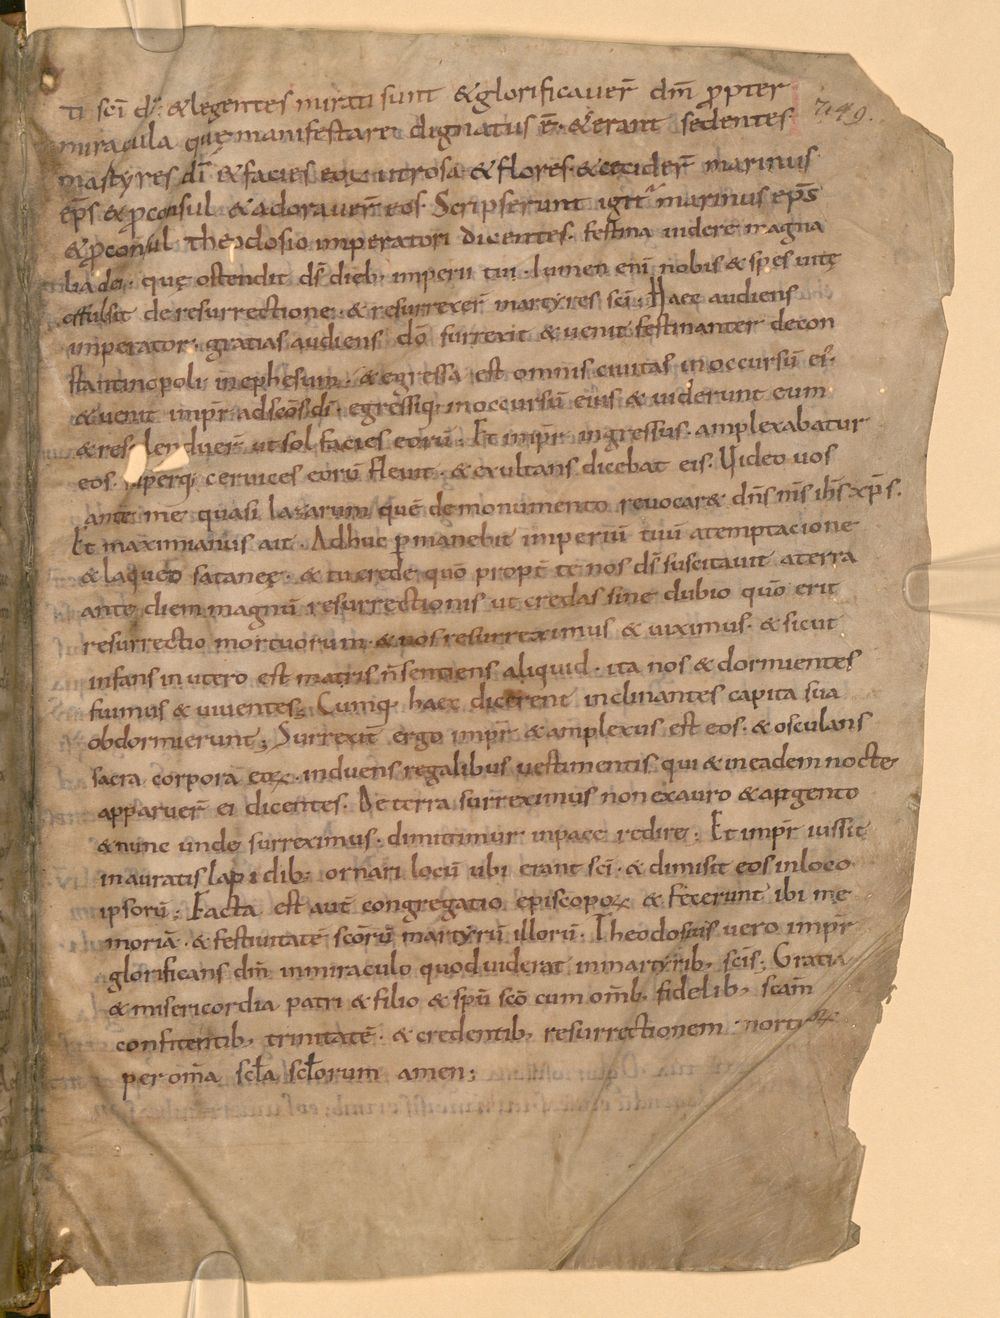 ti sc̄i dī· & legentes mirati sunt & glorificaver̄ dm̄ ꝓpter
749.
miracula quę manifestare dignatus ē· & erant sedentes
martyres dī & facies eoꝝ ut rosa & flores· & cecider̄ marinus
ep̄s & ꝓconsul & adoraver̄ eos· Scripserunt igit᷑ marinus ep̄s
& ꝓconsul theodosio imperatori dicentes· festina videre magna
lia dei· quę ostendit ds̄ dieb; imperii tui· lumen eni nobis & spes vitę
effulsit de resurrectione· & resurrexer̄ martyres sc̄i; Haec audiens
imperator· gratias audiens dō surrexit & venit festinanter decon
stantinopoli in ephesum· & egressa est omnis civitas in occursū ei᷒·
& venit imp̄r ad sc̄os dī· egressiq; in occursū eius & viderunt eum
& resplenduer̄ ut sol facies eorū· Et imp̄r ingressus· amplexabatur
eos· superq; cervices eorū flevit· & exultans dicebat eis· Video vos
ante me quasi lazarum quē de monumento revocar& dn̄s nr̄s ih̄s xp̄s·
Et maximianus ait· Adhuc ꝑmanebit imperiū tuū atemptacione
& laqueo satanę· & tu crede quō propt̄ te nos ds̄ suscitavit aterra
ante diem magnū resurrectionis ut credas sine dubio quō erit
resurrectio mortuorum· & nos resurreximus & viximus· & sicut
infans in utero est matris n̄ sentiens aliquid· ita nos & dormientes
fuimus & viventes; Cumq; haec dicerent inclinantes capita sua
obdormierunt; Surrexit ergo imp̄r & amplexus est eos· & osculans
sacra corpora eoꝝ· induens regalibus vestimentis· qui & in eadem nocte
apparuer̄ ei dicentes· De terra surreximus non exauro & argento
& nunc unde surreximus· dimittimur inpace redire; Et imp̄r iussit
in auratis lapidib; ornari locū ubi erant sc̄i· & dimisit eos inloco
ipsorū; Facta est aut̄ congregatio episcopoꝝ & fecerunt ibi me
moriā· & festivitatē sc̄orū martyrū illorū· Theodosius vero imp̄r
glorificans dm̄ in miraculo quod viderat in martyrib; sc̄is; Gratia
& misericordia patri & filio & spū sc̄o cum om̄ib; fidelib; sc̄am
confitentib; trinitatē· & credentib; resurrectionem mortuoꝝ
per om̄a sc̄la sc̄lorum amen;